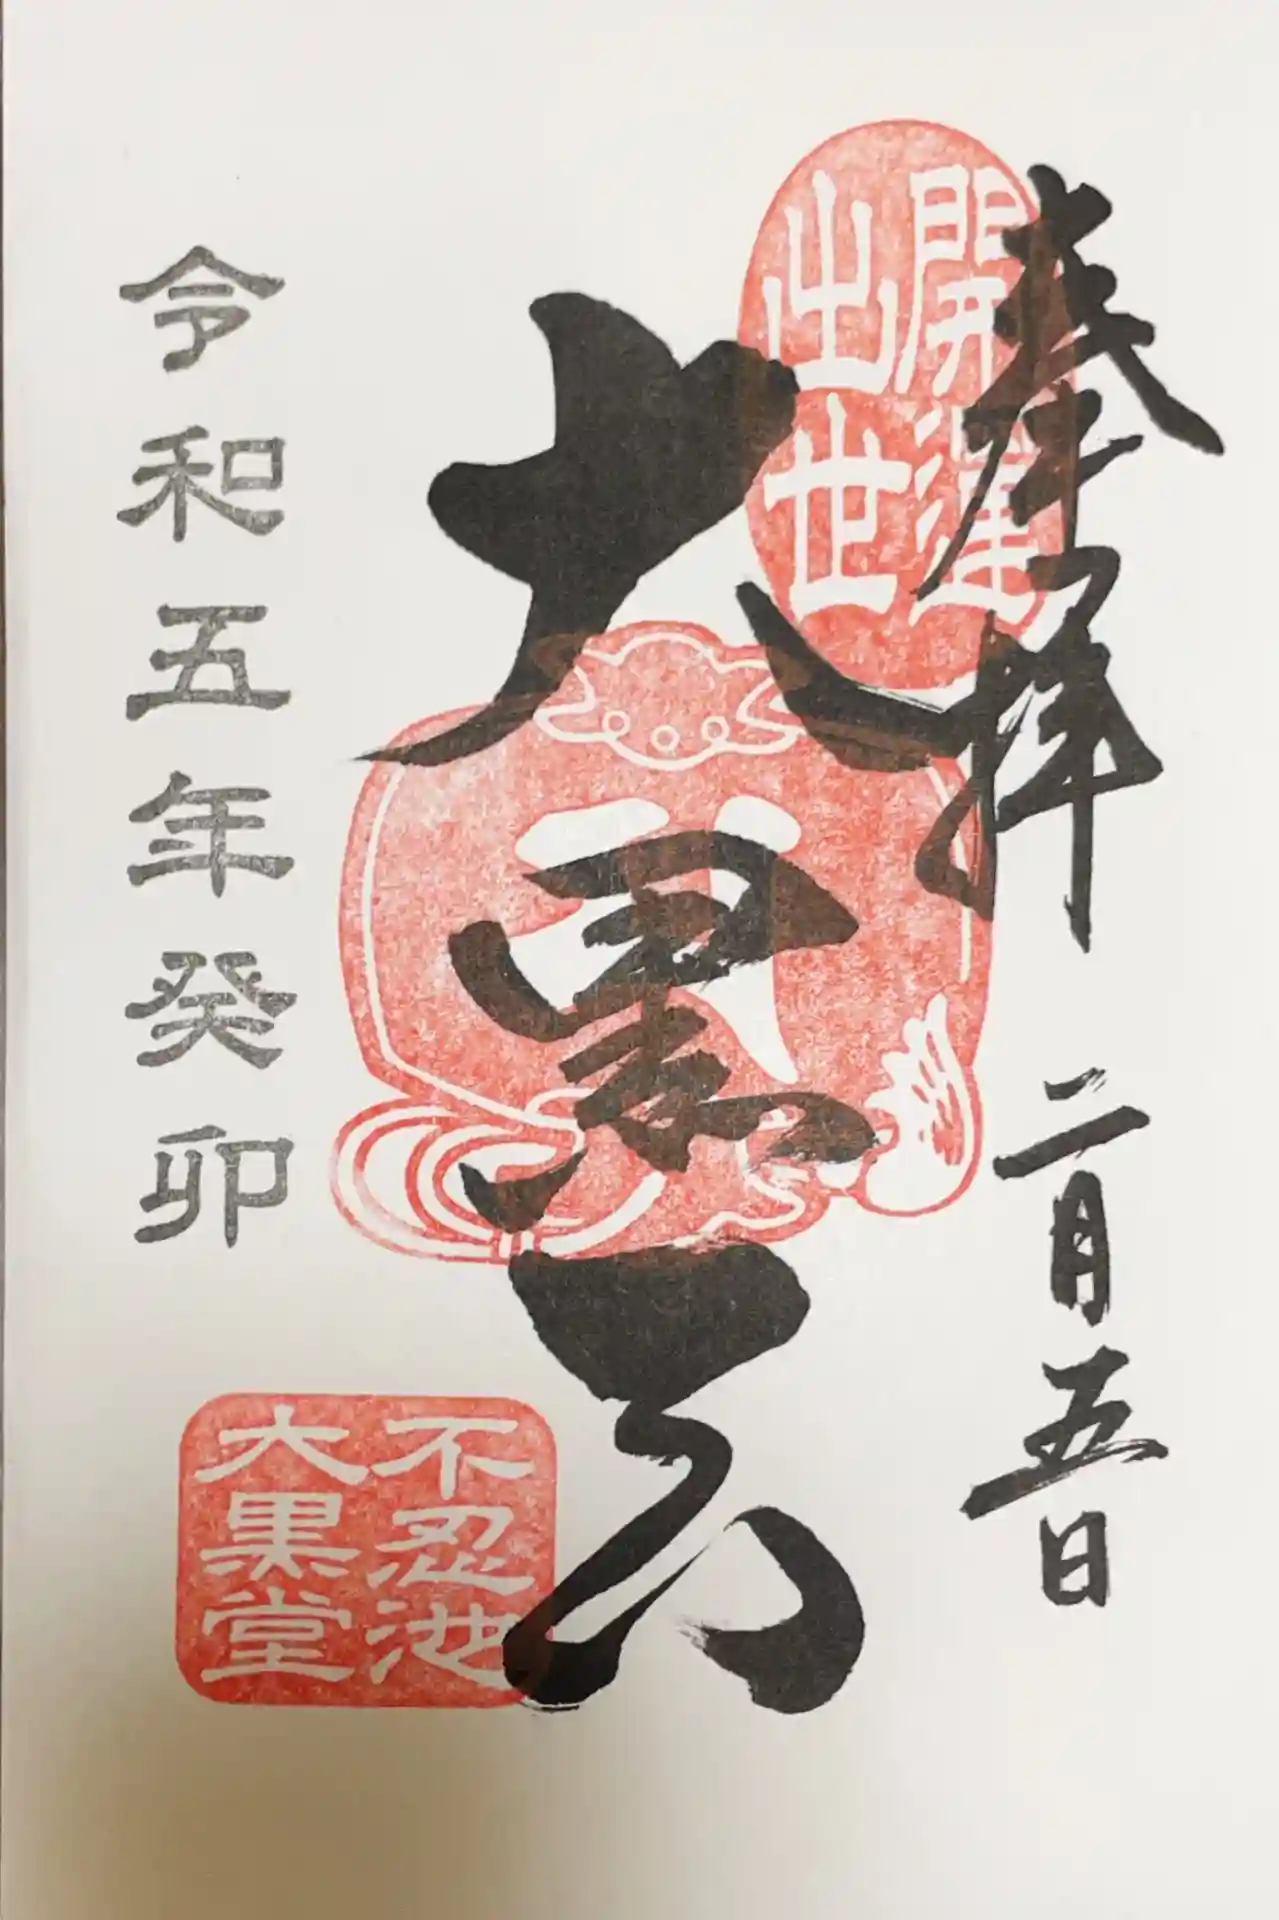 奉拝 二月五日
開運
出世
大黒天
不忍池
大黒堂
令和五年癸卯